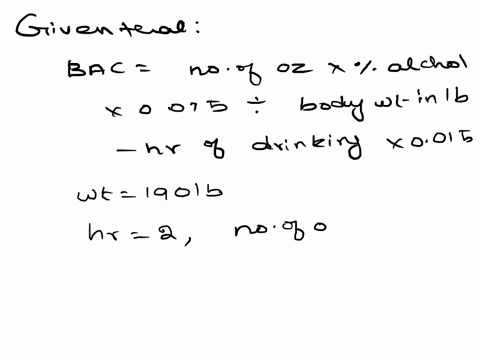 Given that:
BAC = no. of oz x % alchol
x 0.075 ÷ body wt in lb
- hr of drinking x 0.015
wt = 190 lb
hr = 2, no. of o